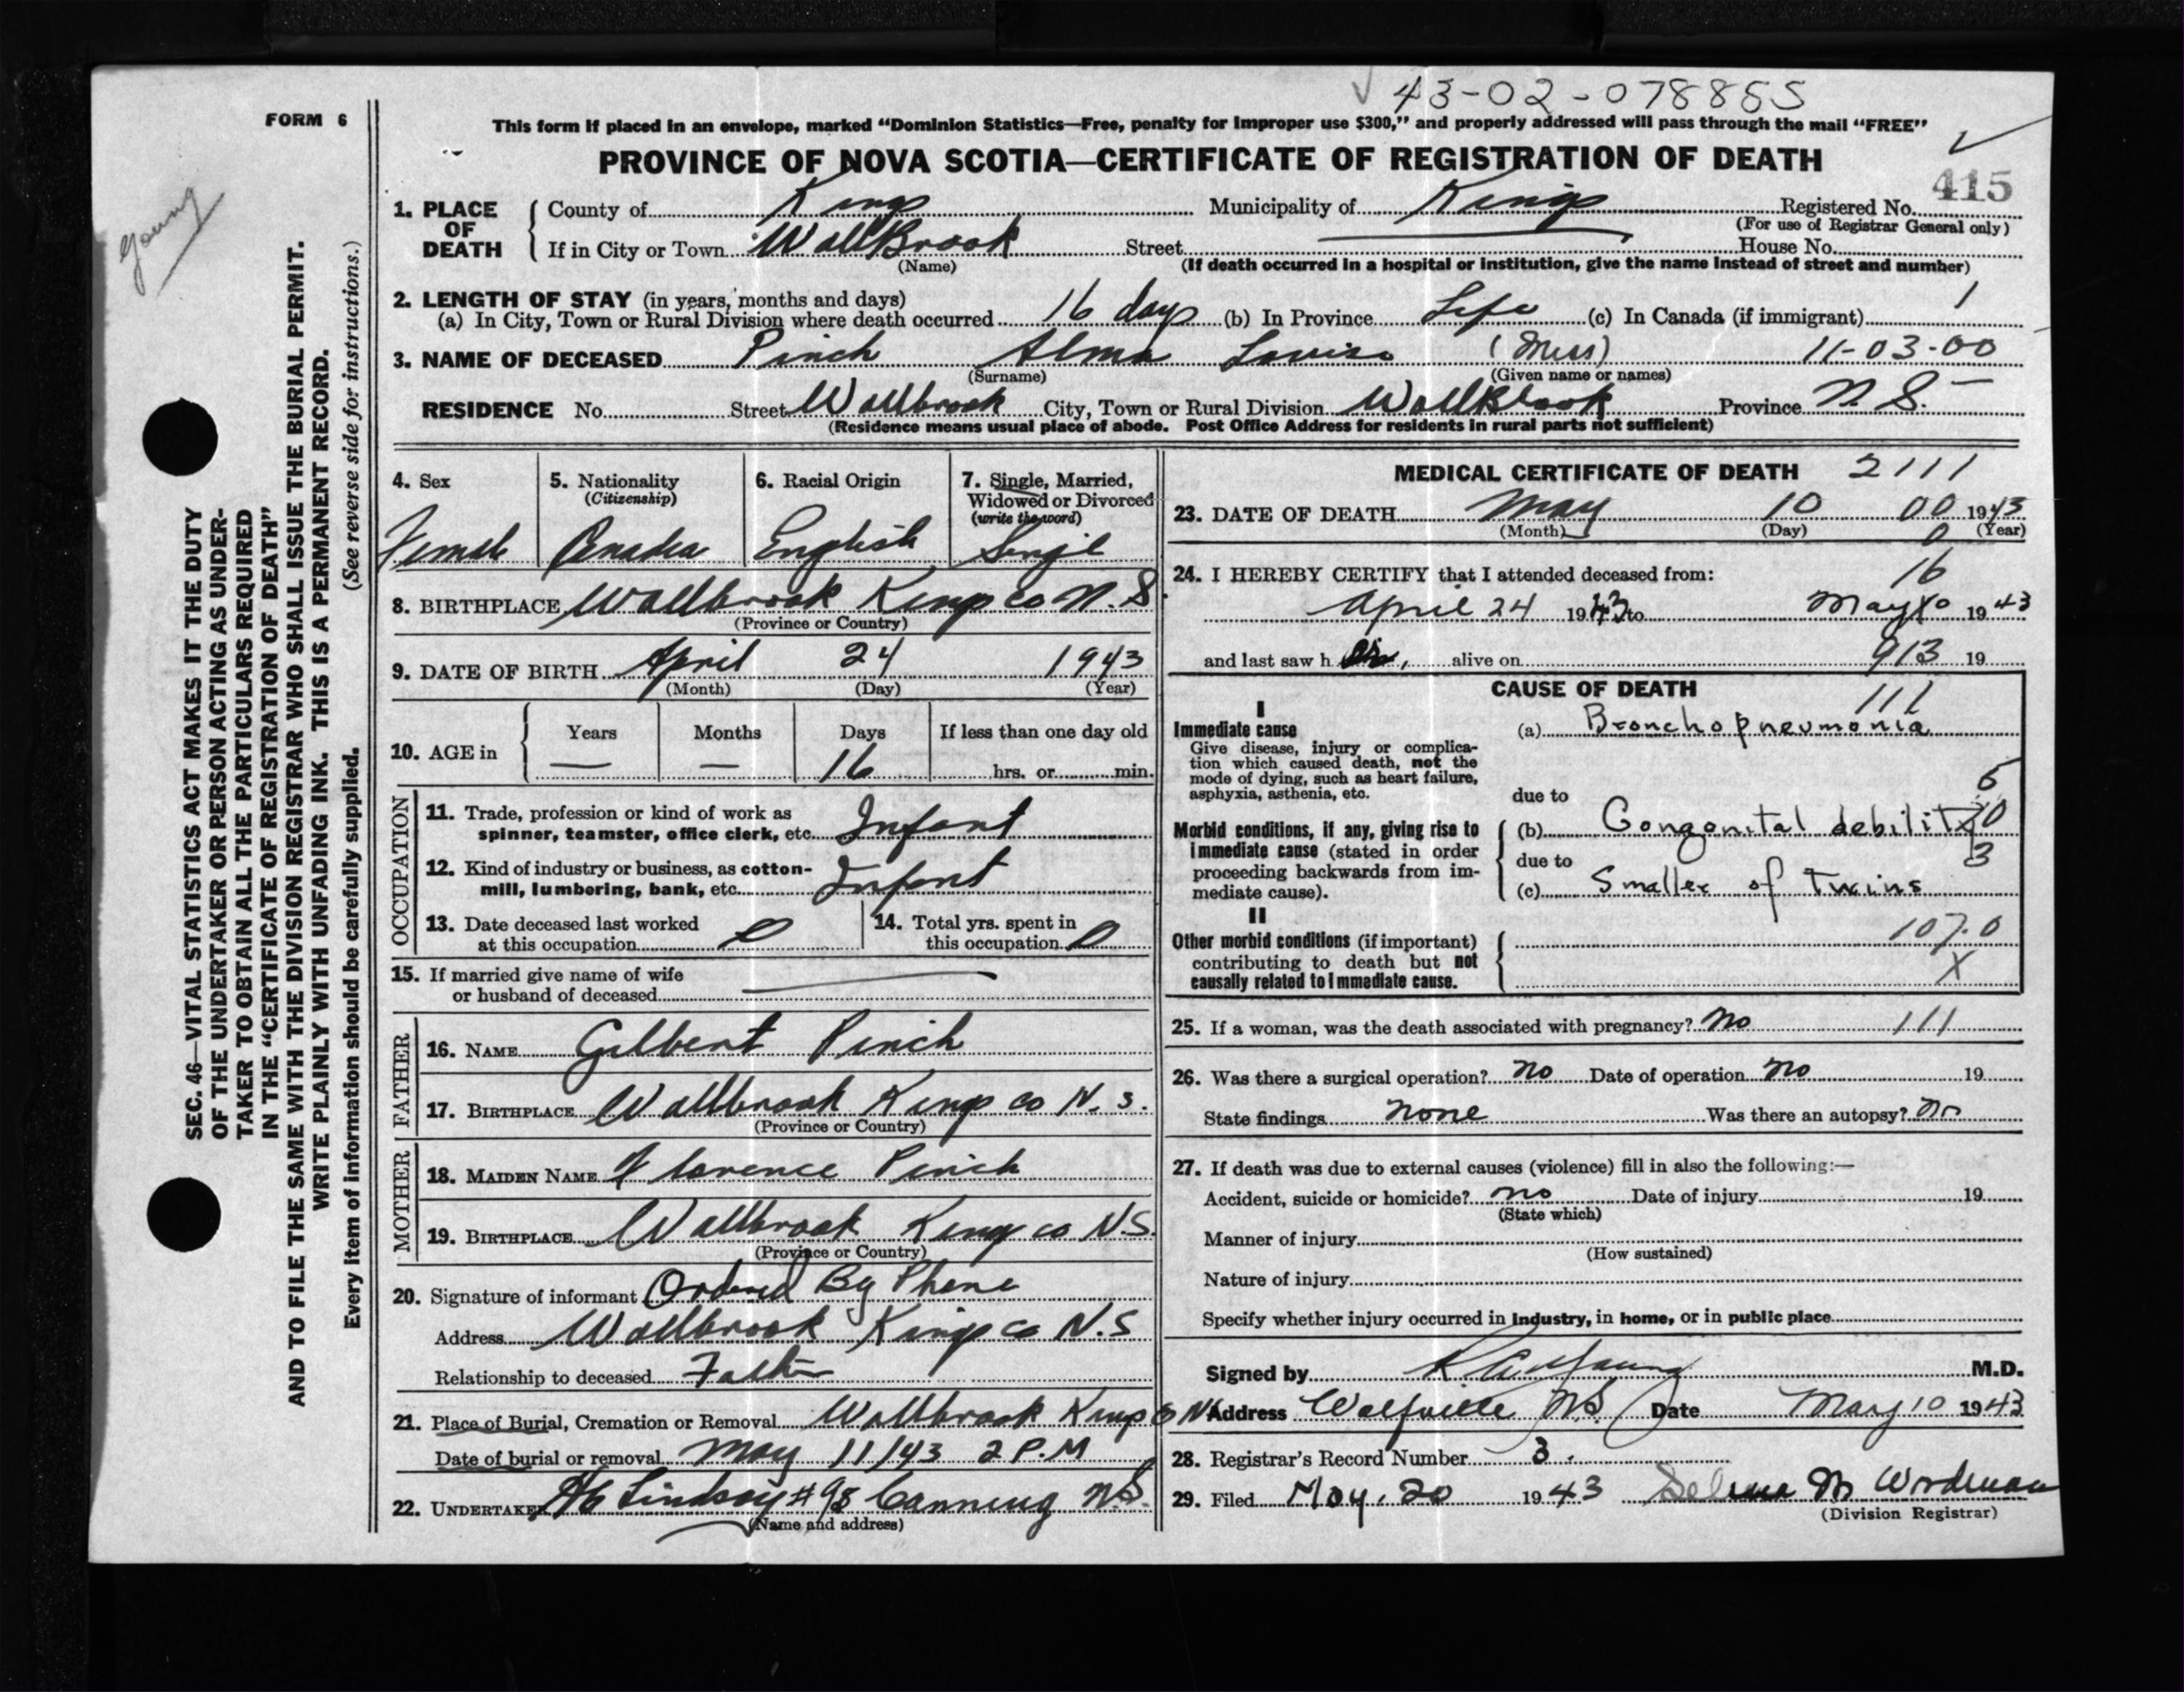 43-02-078885
FORM 6
This form if placed in an envelope, marked “Dominion Statistics—Free, penalty for improper use $300,” and properly addressed will pass through the mail “FREE”
PROVINCE OF NOVA SCOTIA—CERTIFICATE OF REGISTRATION OF DEATH
415
Young
1. PLACE OF DEATH
County of Kings Municipality of Kings Registered No.
(For use of Registrar General only)
If in City or Town WallBrook Street House No.
(Name) (If death occurred in a hospital or institution, give the name instead of street and number)
2. LENGTH OF STAY (in years, months and days) 1
(a) In City, Town or Rural Division where death occurred 16 days (b) In Province Life (c) In Canada (if immigrant)
3. NAME OF DECEASED Pinch Alma Louise (Miss) 11-03-00
(Surname) (Given name or names)
RESIDENCE No. Street Wallbrook City, Town or Rural Division WallBrook Province N.S.
(Residence means usual place of abode. Post Office Address for residents in rural parts not sufficient)
4. Sex
Female
5. Nationality
(Citizenship)
Canadia
6. Racial Origin
English
7. Single, Married,
Widowed or Divorced
(write the word)
Singil
8. BIRTHPLACE Wallbrook Kings co N.S
(Province or Country)
9. DATE OF BIRTH April 24 1943
(Month) (Day) (Year)
10. AGE in
Years Months Days If less than one day old
— — 16 hrs. or min.
OCCUPATION
11. Trade, profession or kind of work as
spinner, teamster, office clerk, etc. Infant
12. Kind of industry or business, as cotton-
mill, lumbering, bank, etc. Infant
13. Date deceased last worked
at this occupation 0
14. Total yrs. spent in
this occupation 0
15. If married give name of wife
or husband of deceased —
FATHER
16. NAME Gilbert Pinch
17. BIRTHPLACE Wallbrook Kings co N.S.
(Province or Country)
MOTHER
18. MAIDEN NAME Florence Pinch
19. BIRTHPLACE Wallbrook Kings co N.S.
(Province or Country)
20. Signature of informant Ordered By Phone
Address Wallbrook Kings co N.S
Relationship to deceased Father
21. Place of Burial, Cremation or Removal Wallbrook Kings co N
Date of burial or removal May 11/43 2 P.M
22. UNDERTAKER Lindsay #98 Canning N.S.
(Name and address)
MEDICAL CERTIFICATE OF DEATH 2111
23. DATE OF DEATH May 10 00 1943
(Month) (Day) (Year)
0
24. I HEREBY CERTIFY that I attended deceased from: 16
April 24 1943 to May 10 1943
and last saw h er, alive on 913 19
CAUSE OF DEATH
111
I
Immediate cause
Give disease, injury or complica-
tion which caused death, not the
mode of dying, such as heart failure,
asphyxia, asthenia, etc.
(a) Bronchopneumonia
due to 5
Morbid conditions, if any, giving rise to
immediate cause (stated in order
proceeding backwards from im-
mediate cause).
(b) Congonital debility 0
due to 3
(c) Smaller of Twins
II
Other morbid conditions (if important)
contributing to death but not
causally related to immediate cause.
107.0
X
25. If a woman, was the death associated with pregnancy? No 111
26. Was there a surgical operation? No Date of operation No 19
State findings None Was there an autopsy? No
27. If death was due to external causes (violence) fill in also the following:—
Accident, suicide or homicide? No Date of injury 19
(State which)
Manner of injury
(How sustained)
Nature of injury
Specify whether injury occurred in industry, in home, or in public place
Signed by Young M.D.
Address Wolfville N.S. Date May 10 1943
28. Registrar's Record Number 3.
29. Filed May. 20 1943 Selena M Wordman
(Division Registrar)
SEC. 46—VITAL STATISTICS ACT MAKES IT THE DUTY
OF THE UNDERTAKER OR PERSON ACTING AS UNDER-
TAKER TO OBTAIN ALL THE PARTICULARS REQUIRED
IN THE “CERTIFICATE OF REGISTRATION OF DEATH”
AND TO FILE THE SAME WITH THE DIVISION REGISTRAR WHO SHALL ISSUE THE BURIAL PERMIT.
WRITE PLAINLY WITH UNFADING INK. THIS IS A PERMANENT RECORD.
Every item of information should be carefully supplied. (See reverse side for instructions.)